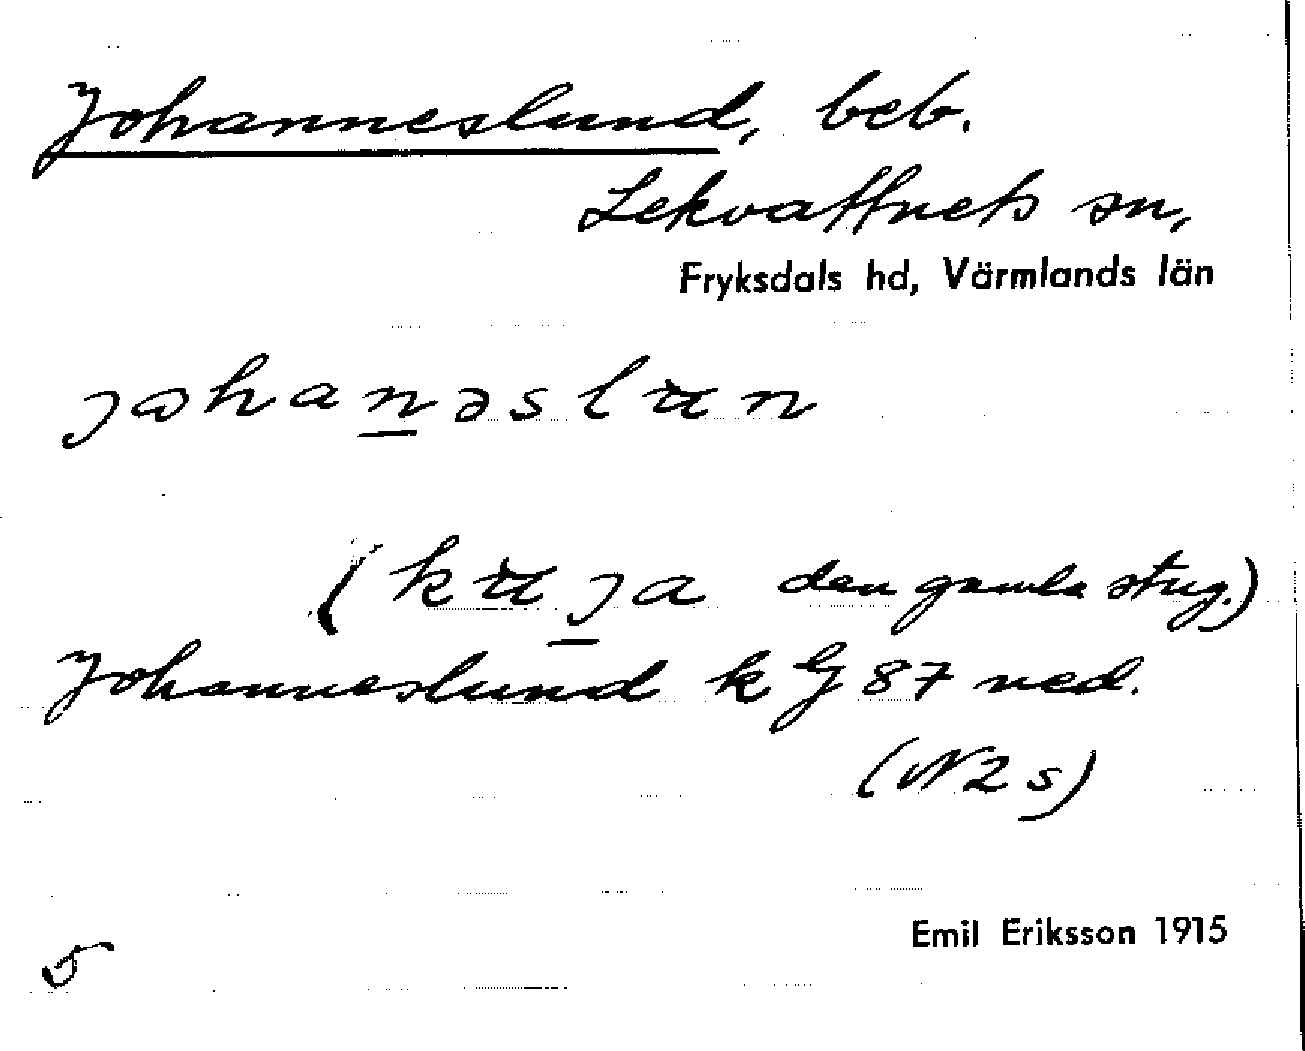 Johanneslund, beb.
Lekvattnets sn,
Fryksdals hd, Värmlands län
johanəslun
(kuja den gamla stug.)
Johanneslund k Ej 87 ned.
(N 2 s)
Emil Eriksson 1915
5